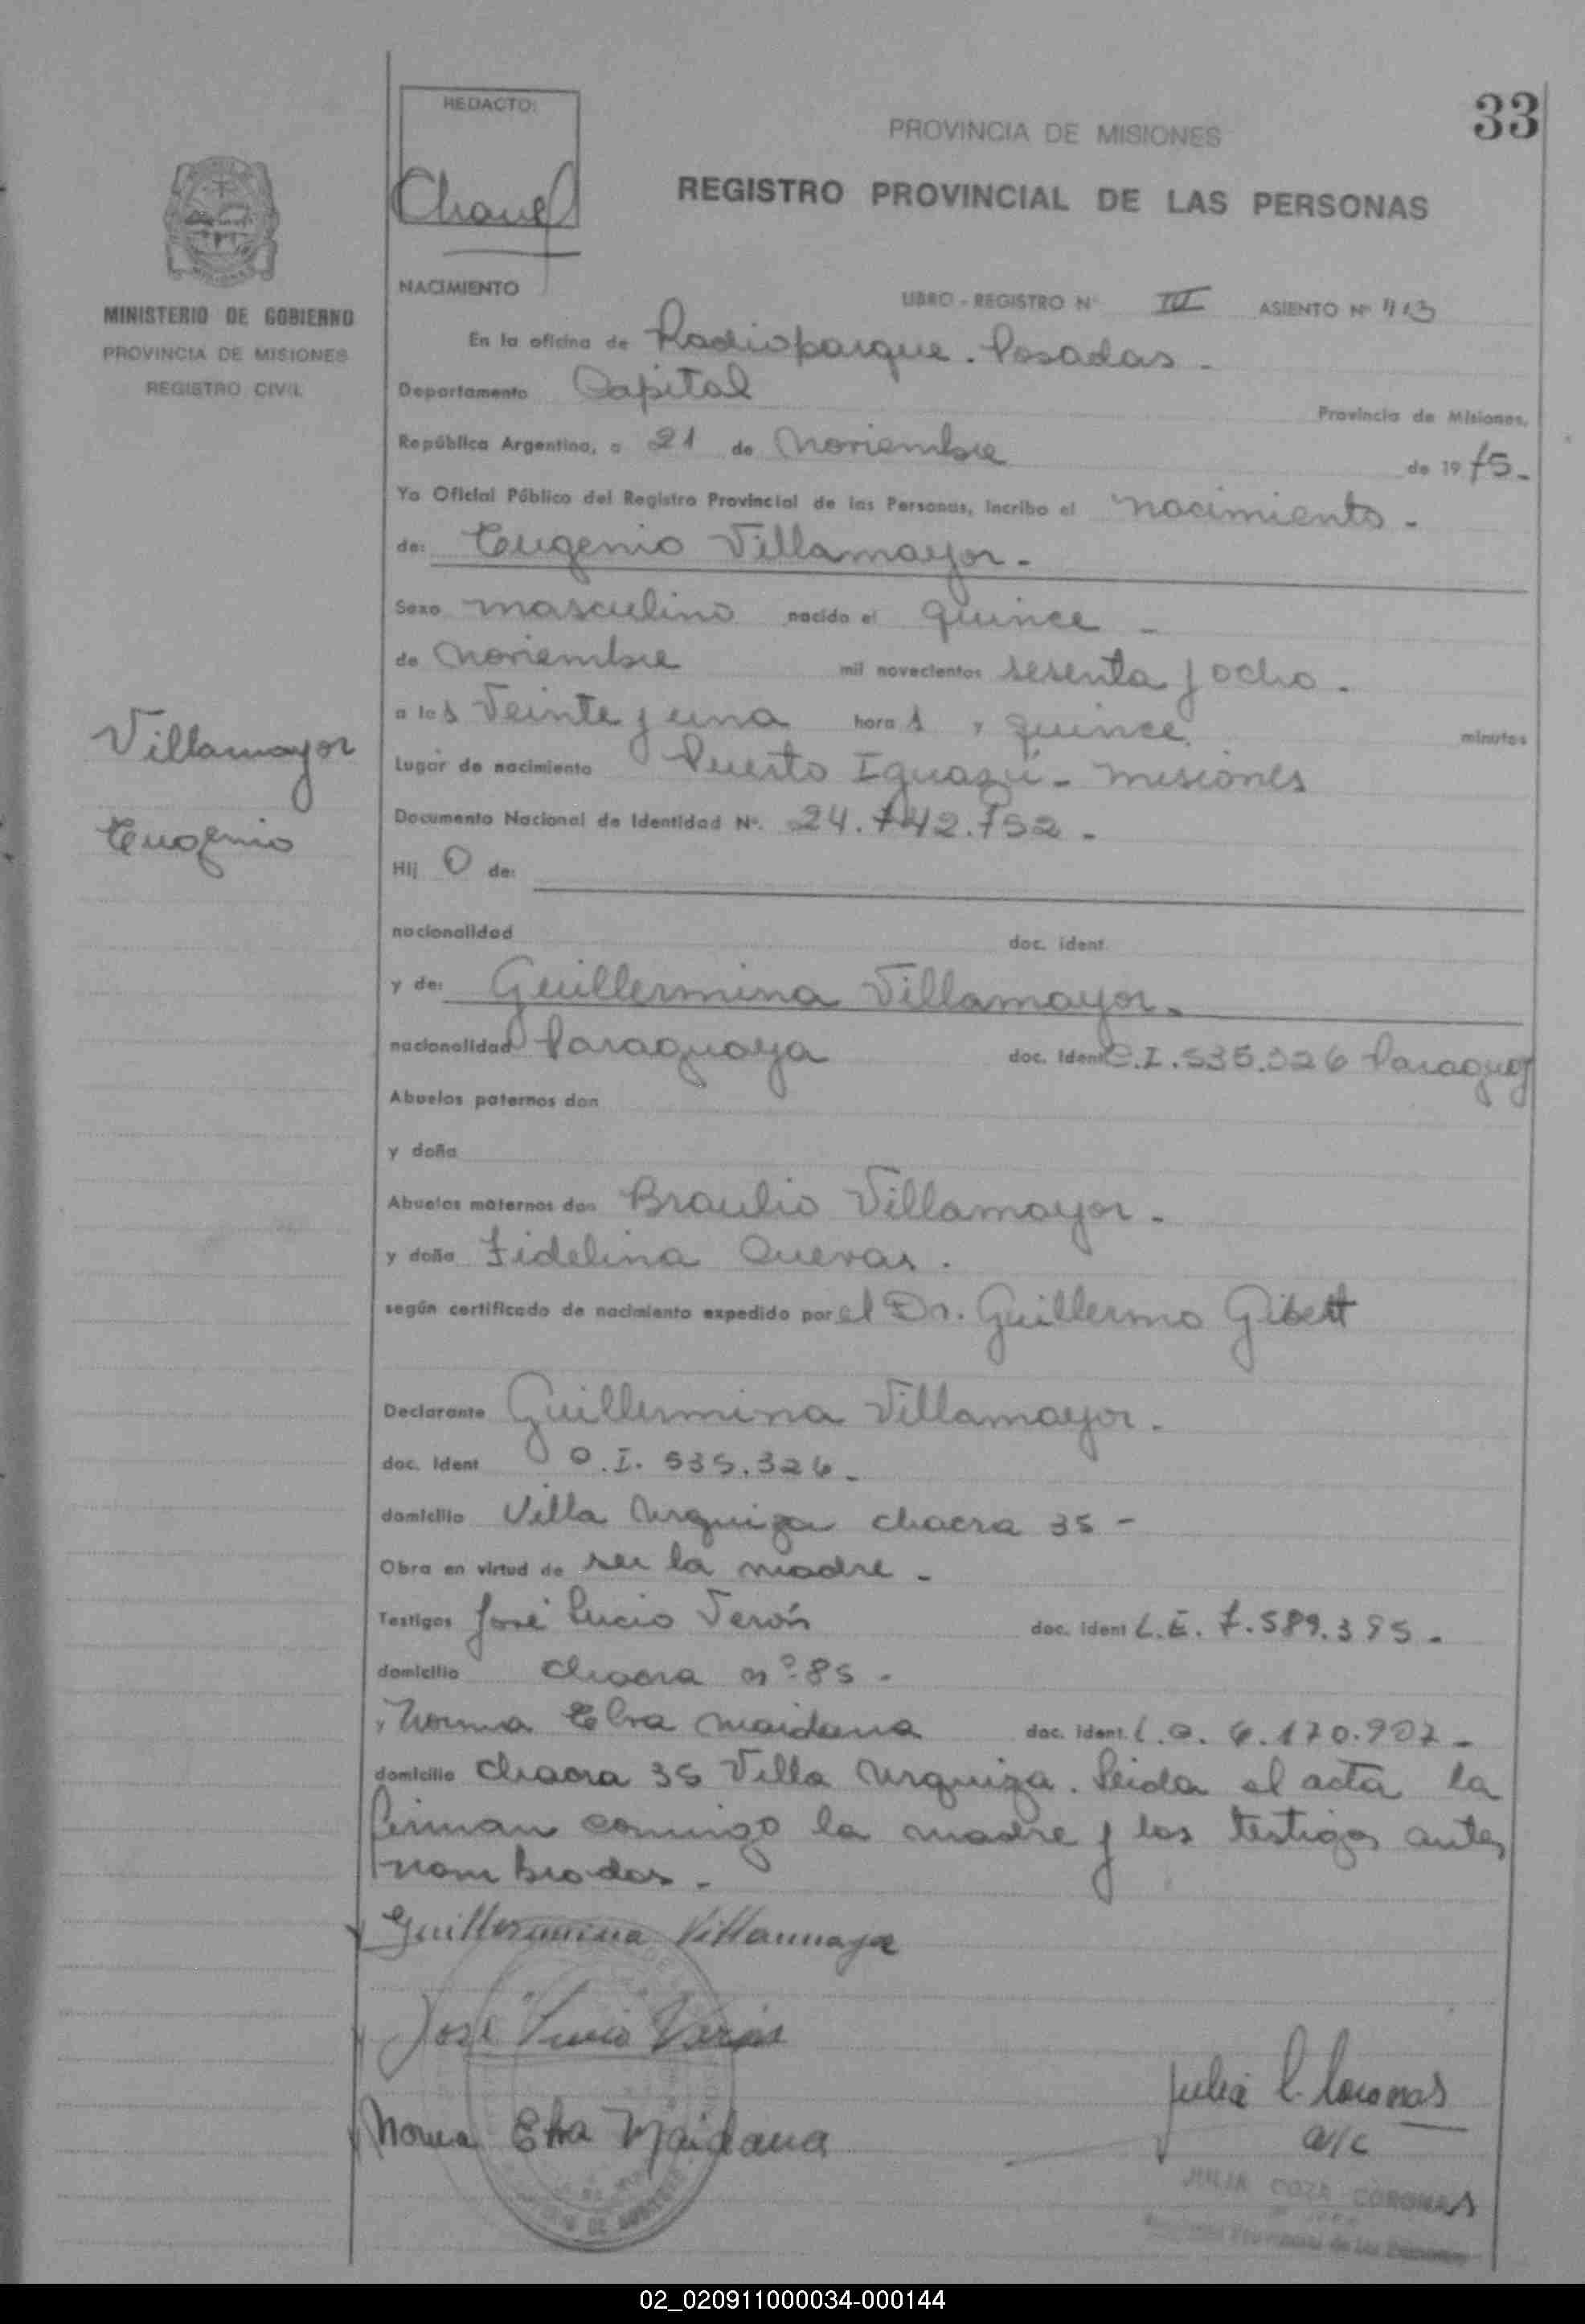 33
REDACTO:
PROVINCIA DE MISIONES
REGISTRO PROVINCIAL DE LAS PERSONAS
MINISTERIO DE GOBIERNO
PROVINCIA DE MISIONES
REGISTRO CIVIL
NACIMIENTO
LIBRO - REGISTRO Nº III ASIENTO Nº 413
En la oficina de Radioparque. Posadas -
Departamento Capital
Provincia de Misiones,
República Argentina, a 21 de Noviembre de 1975.-
Yo Oficial Público del Registro Provincial de las Personas, incribo el nacimiento -
de: Eugenio Villamayor. -
Sexo masculino nacido el quince -
de Noviembre mil novecientos sesenta y ocho -
a las Veinte y una horas y quince minutos
Villamayor
Eugenio
Lugar de nacimiento Puerto Iguazú - Misiones
Documento Nacional de Identidad Nº. 24.742.752 -
Hij o de:
nacionalidad doc. ident.
y de: Guillermina Villamayor.
nacionalidad Paraguaya doc. ident C.I. 535.326 Paraguay
Abuelos paternos don
y doña
Abuelos maternos don Braulio Villamayor -
y doña Fidelina Cuevas.
según certificado de nacimiento expedido por el Dr. Guillermo Gibert
Declarante Guillermina Villamayor.
doc. Ident C.I. 535.326 -
domicilio Villa Urquiza chacra 35 -
Obra en virtud de ser la madre -
Testigos José Lucio Verón doc. ident L.E. 7.589.395 -
domicilio Chacra nº 85 -
y Norma Elva Maidana doc. ident. L.C. 6.170.907 -
domicilio Chacra 35 Villa Urquiza. Leida el acta la
firman conmigo la madre y los testigos antes
nombrados. -
Guillermina Villamayor
José Lucio Verón
Norma Elva Maidana
Julia C. Coronas
a/c
JULIA COZA CORONAS
Registro Provincial de las Personas
02_020911000034-000144